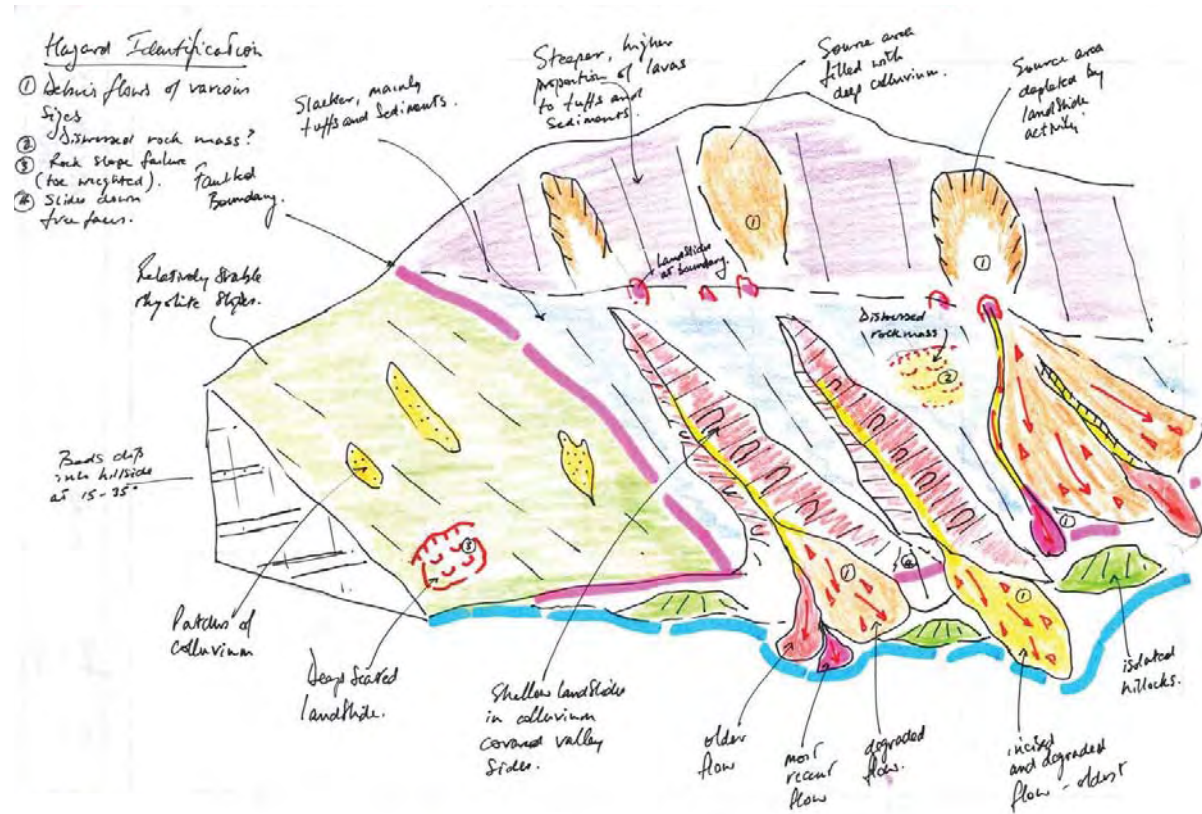 Hazard Identification
① Debris flows of various
sizes
② Distressed rock mass?
③ Rock slope failure
(toe weighted).
④ Slides down
free faces.
Faulted
Boundary.
Slacker, mainly
tuffs and sediments.
Steeper, higher
proportion of lavas
to tuffs and
sediments.
Source area
filled with
deep colluvium.
Source area
depleted by
landslide
activity
①
①
Landslides
at boundary.
Relatively stable
rhyolite slopes.
Distressed
rock mass
②
Beds dip
into hillside
at 15-35°
③
①
④
①
①
Patches of
colluvium
Deep Seated
landslide.
Shallow landslides
in colluvium
covered valley
sides.
older
flow
most
recent
flow
degraded
flow.
incised
and degraded
flow - oldest
isolated
hillocks.